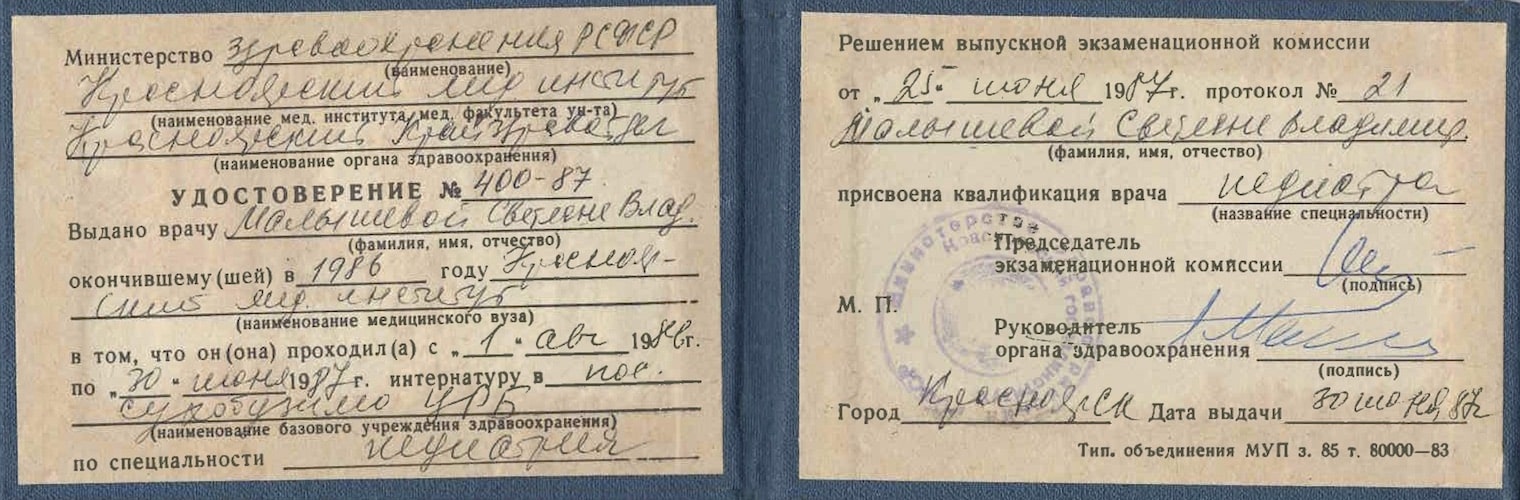 Министерство здравоохранения РСФСР
(наименование)
Красноярский мед институт
(наименование мед. института, мед. факультета ун-та)
Красноярский Крайздравотдел
(наименование органа здравоохранения)
УДОСТОВЕРЕНИЕ № 400-87
Выдано врачу Малышевой Светлане Влад.
(фамилия, имя, отчество)
окончившему (шей) в 1986 году Краснояр-
ский мед. институт
(наименование медицинского вуза)
в том, что он (она) проходил (а) с „1" авг 1986г.
по „30" июня 1987г. интернатуру в пос.
Сухобузимо ЦРБ
(наименование базового учреждения здравоохранения)
по специальности педиатрия
Решением выпускной экзаменационной комиссии
от „25" июня 1987г. протокол № 21
Малышевой Светлане Владимир.
(фамилия, имя, отчество)
присвоена квалификация врача педиатра
(название специальности)
Председатель
экзаменационной комиссии
(подпись)
М. П.
Руководитель
органа здравоохранения
(подпись)
Город Красноярск Дата выдачи 30 июня 87г
Тип. объединения МУП з. 85 т. 80000—83